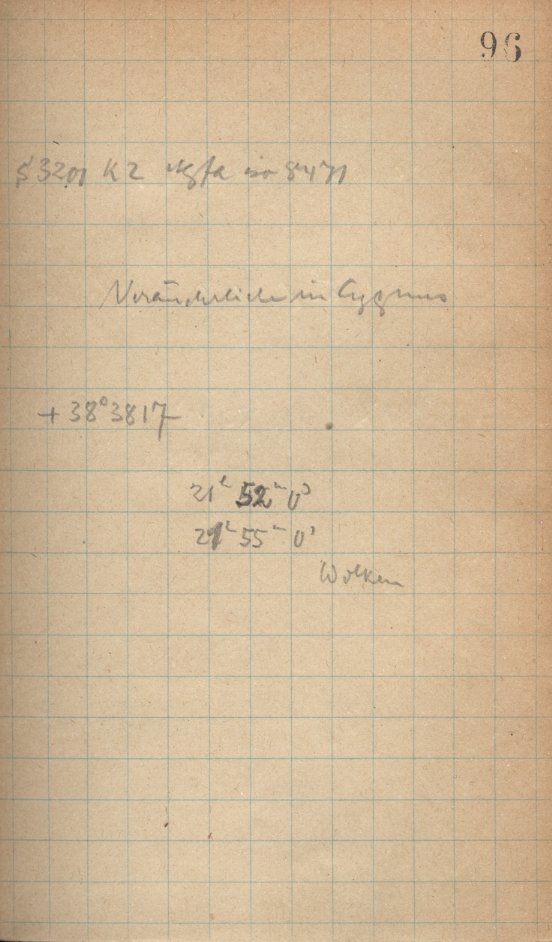 96
K2 iso 8471
Veränderliche in Cygnus
+38°3817
21h 52m 0s
21h 55m 0s
Wolken